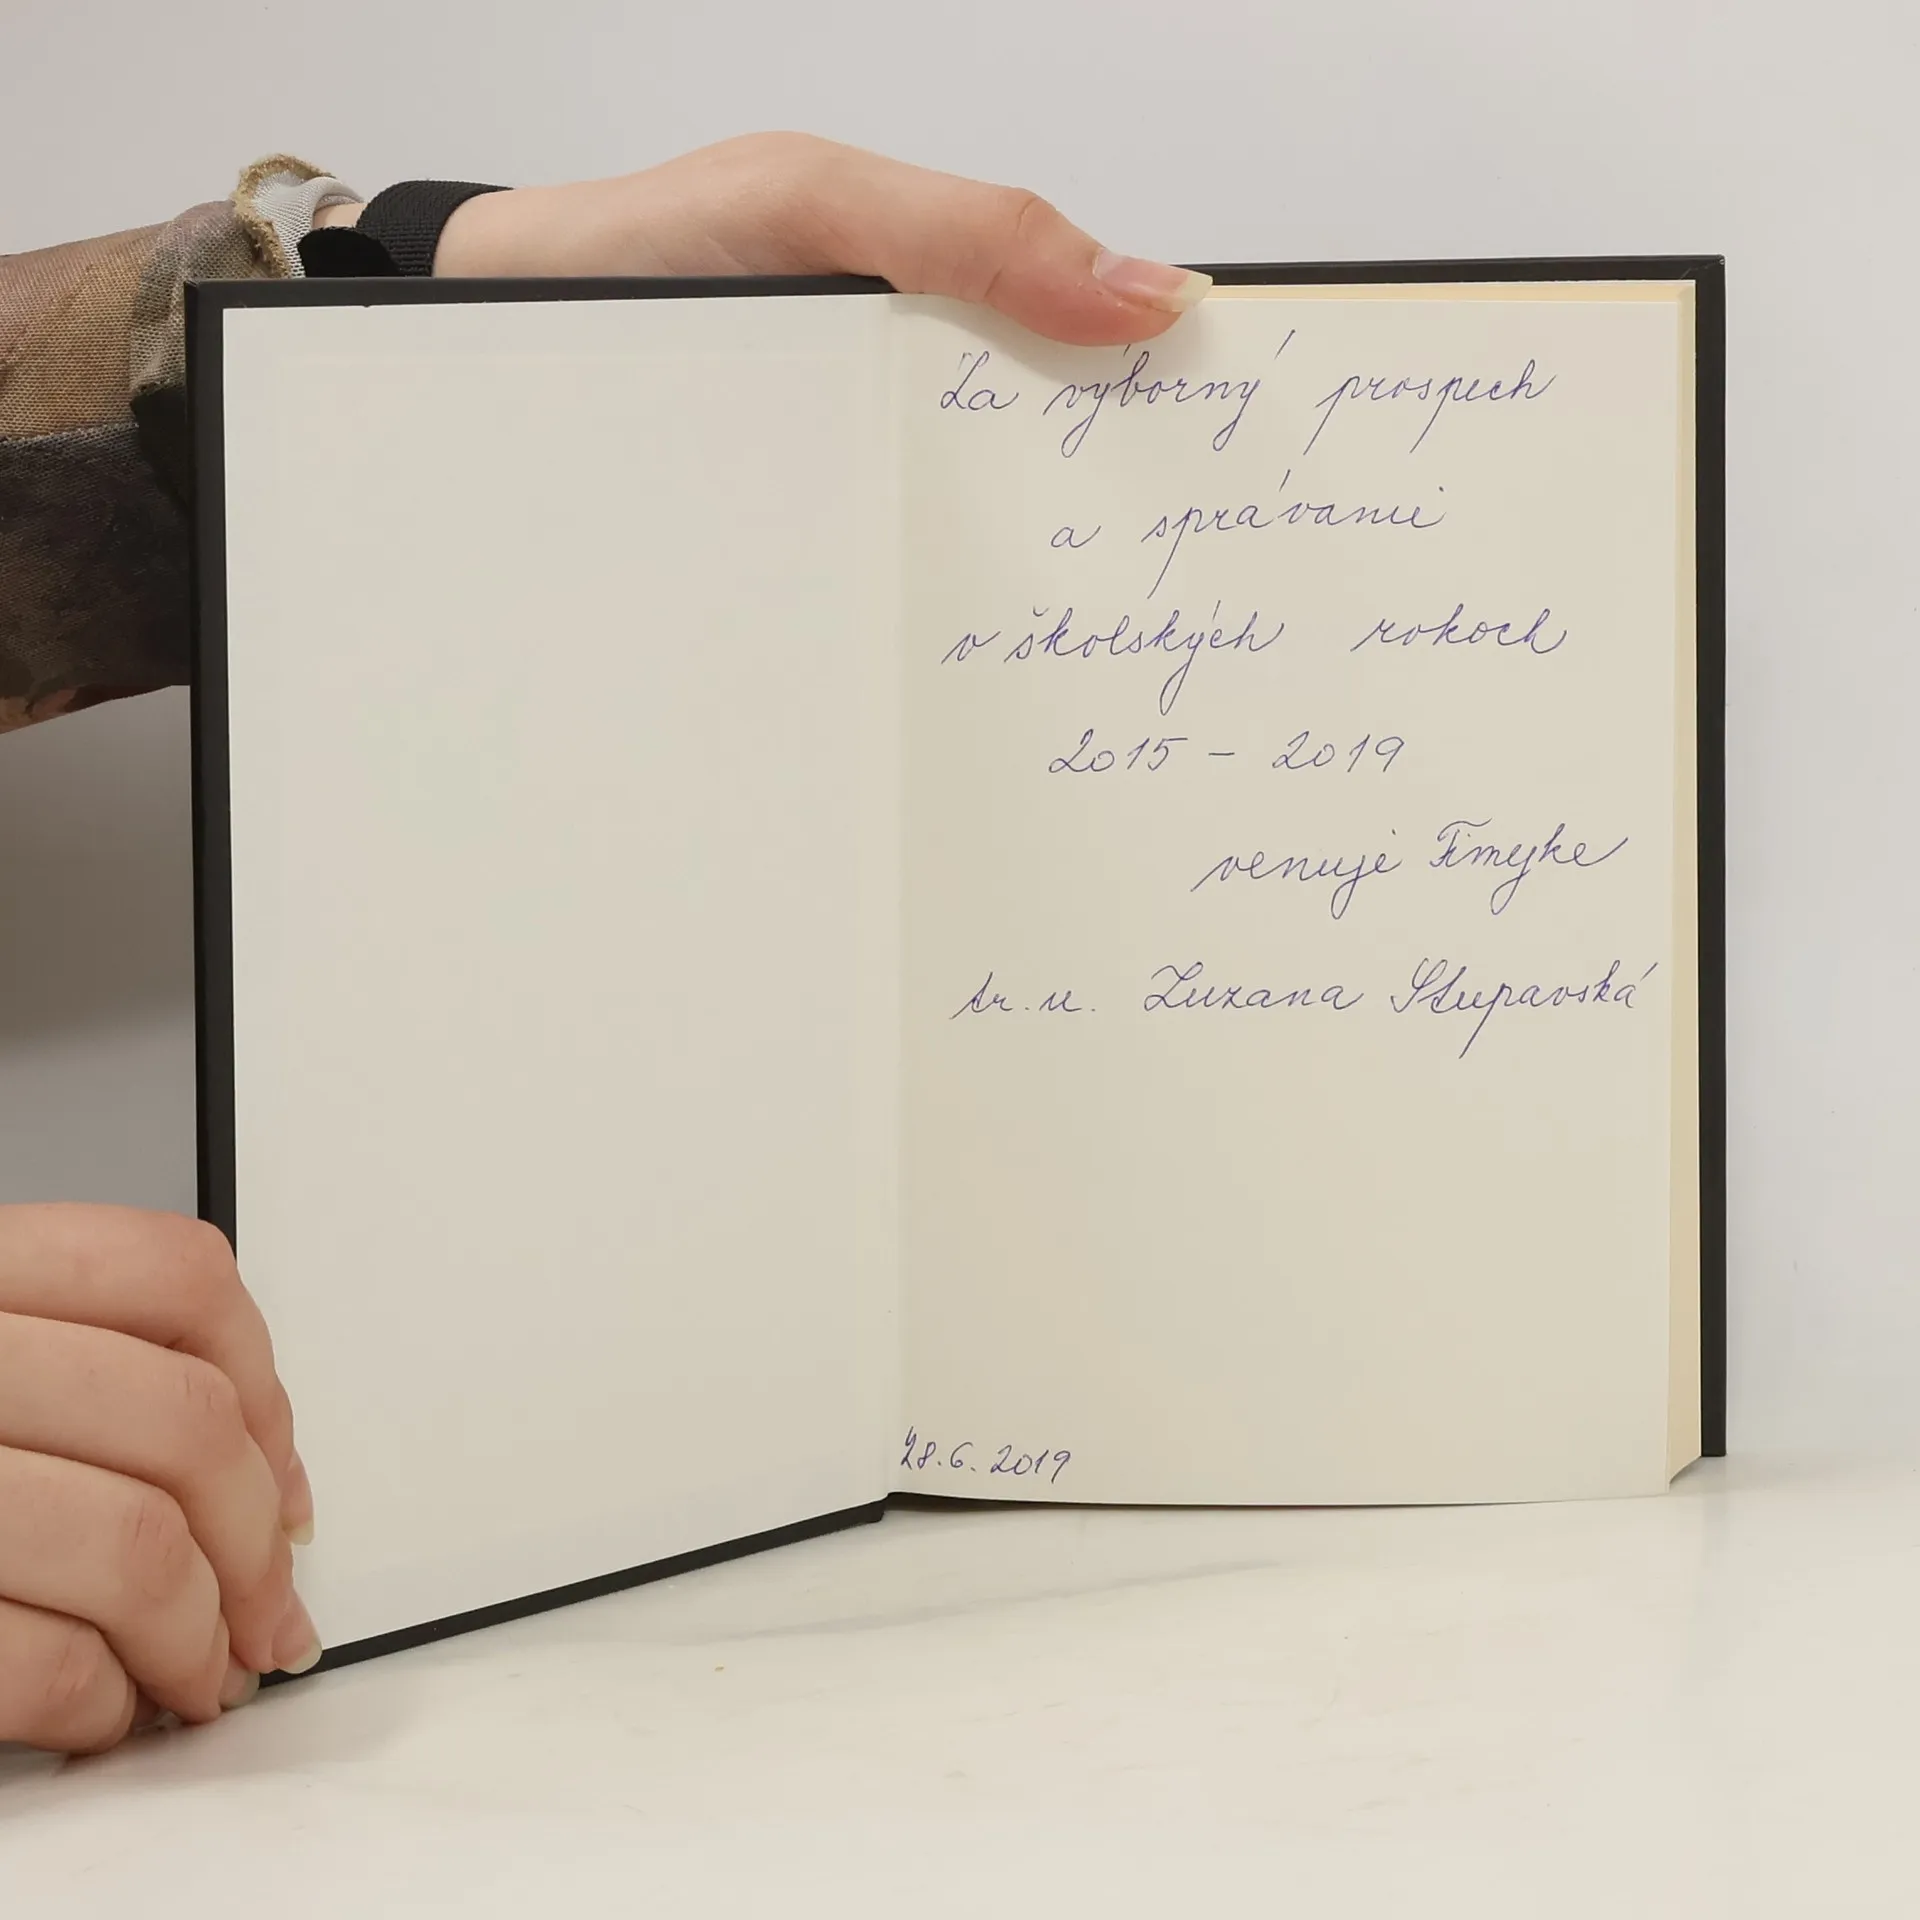 Za výborný prospech
a správanie
v školských rokoch
2015 - 2019
venuje Timejke
tr. u. Zuzana Stupavská
28.6. 2019